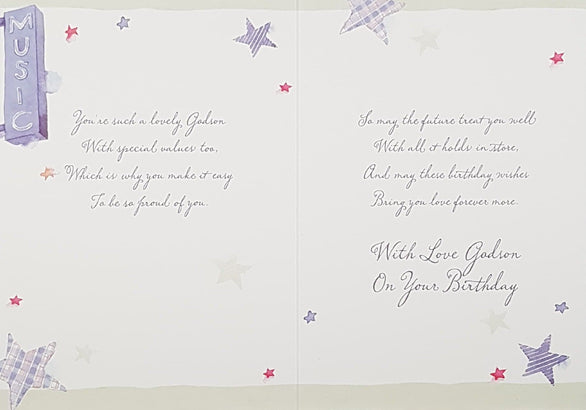 MUSIC
You're such a lovely Godson
With special values too,
Which is why you make it easy
To be so proud of you.
So may the future treat you well
With all it holds in store,
And may these birthday wishes
Bring you love forever more.
With Love Godson
On Your Birthday